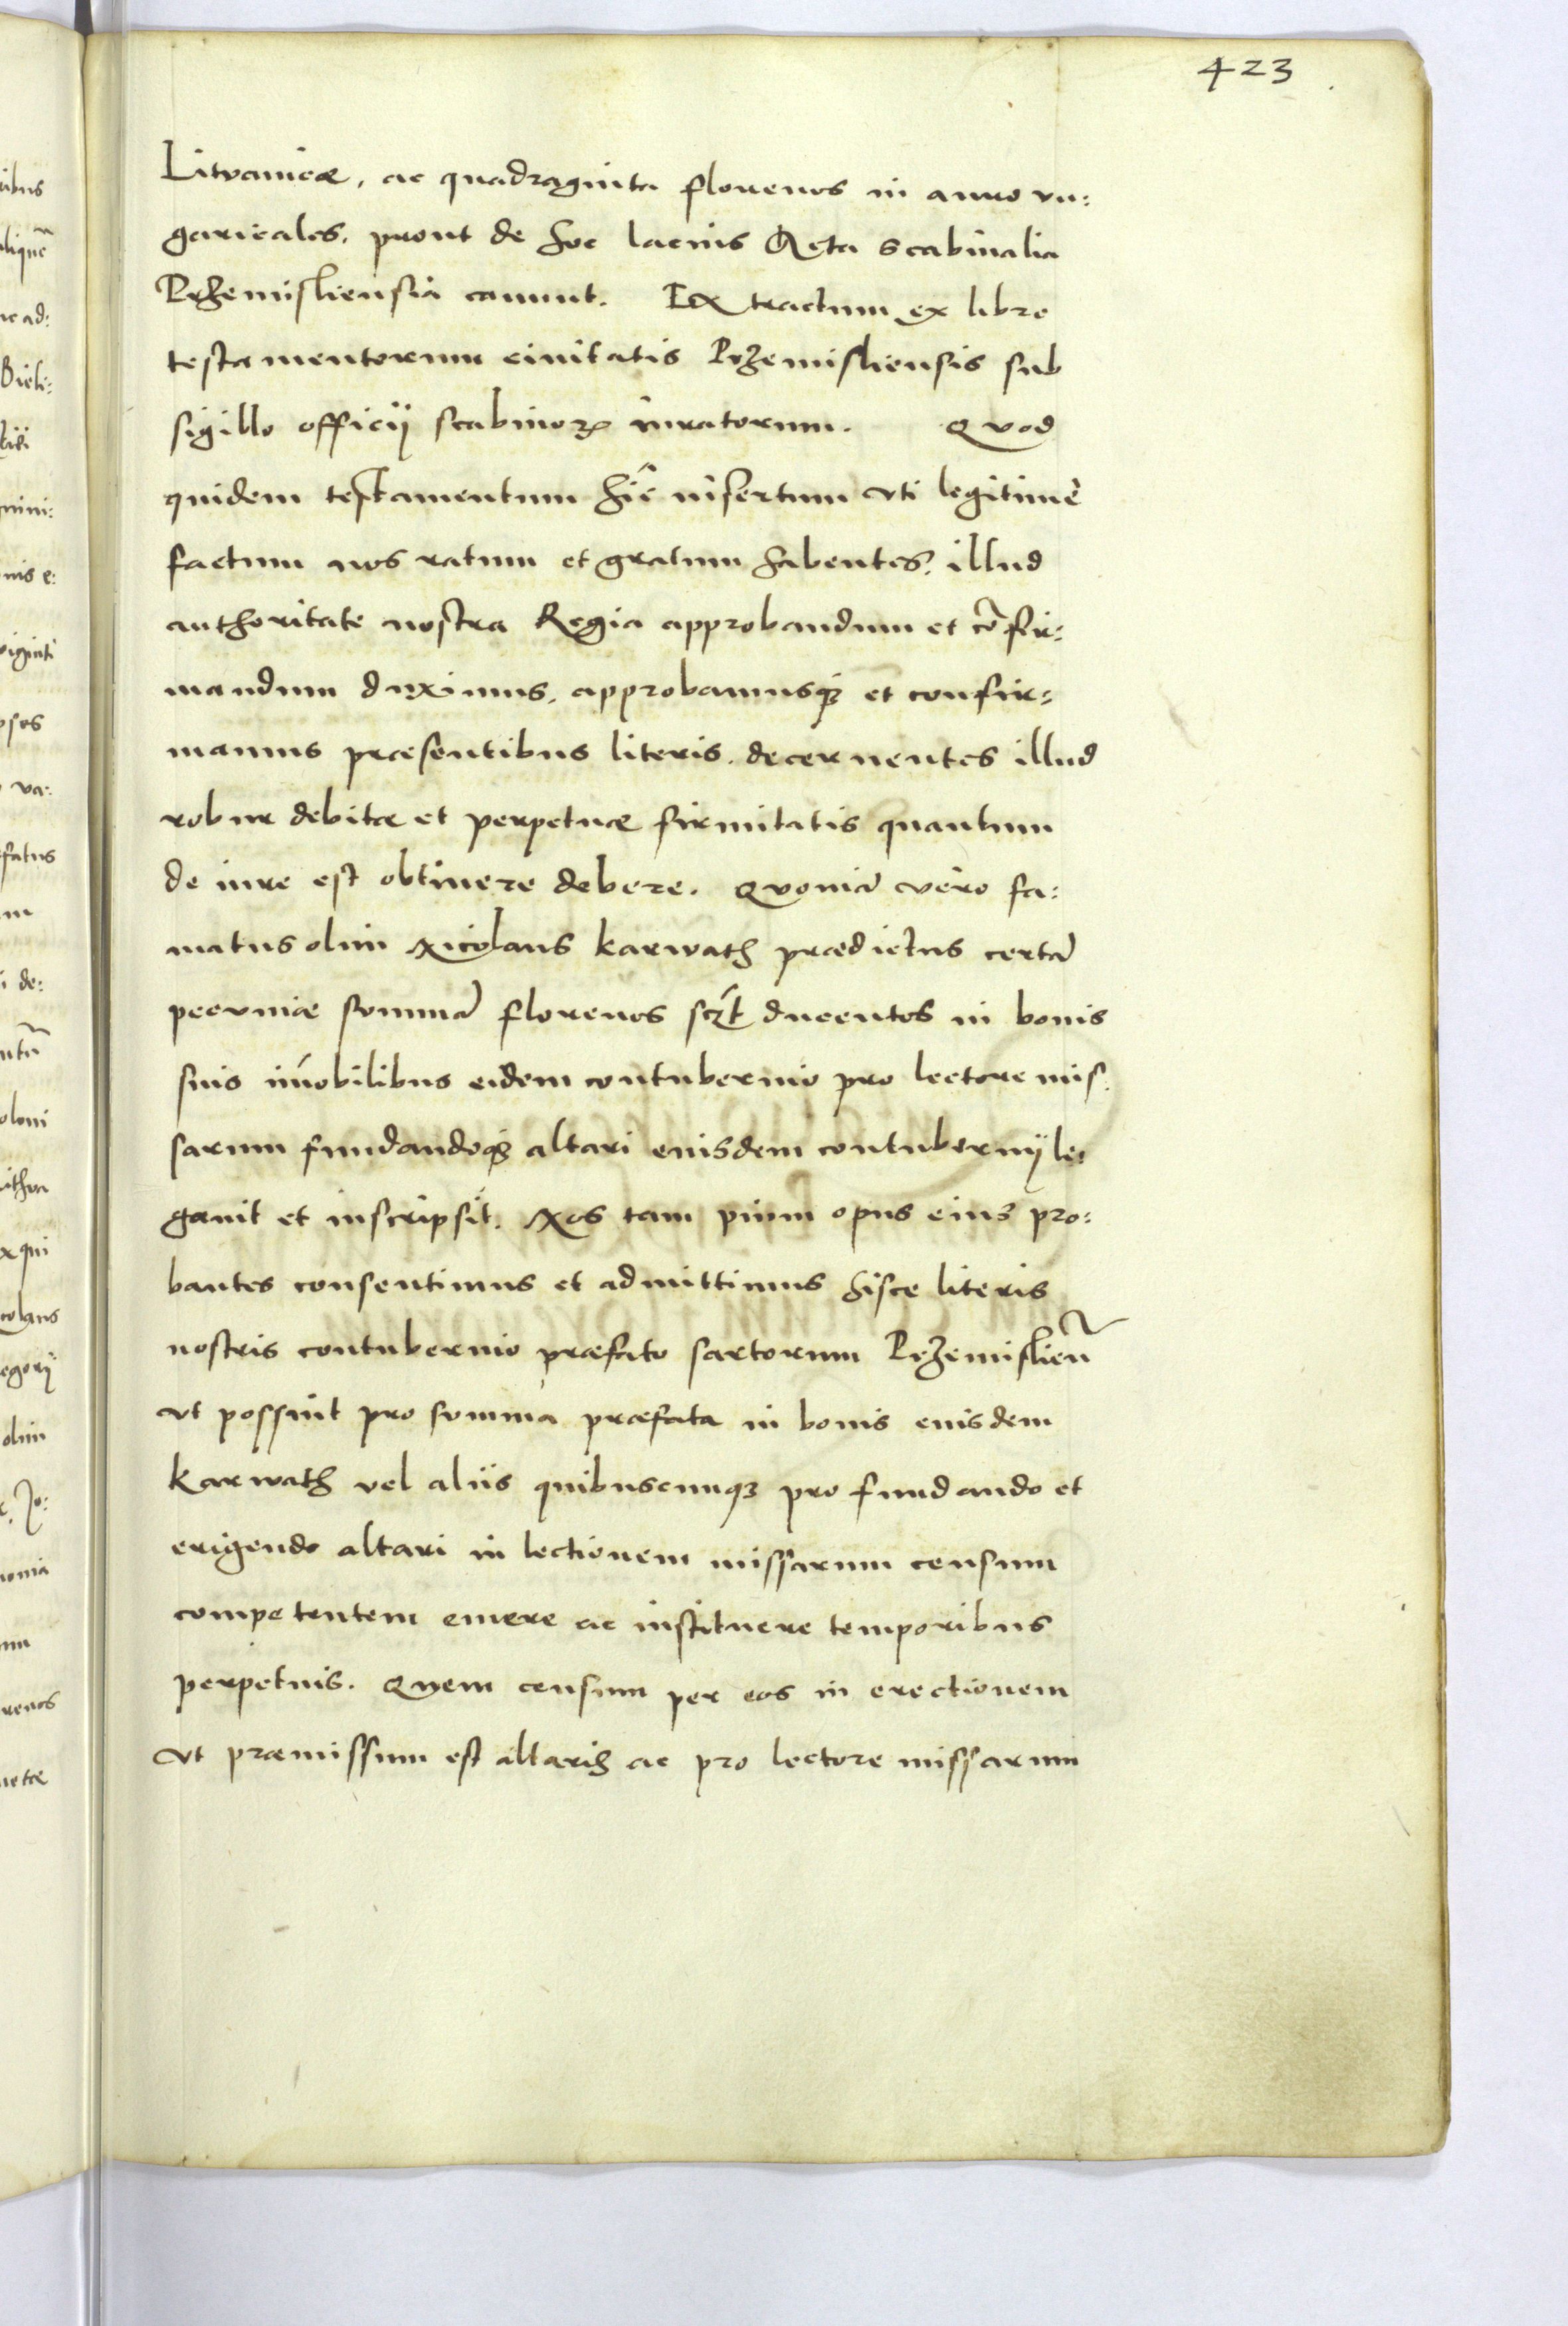 423
Litvanicæ, ac quadraginta florenos in auro vn:
garicales, prout de hoc lacius Acta scabinalia
Przemisliensia canunt. Extractum ex libro
testamentorum civitatis Przemisliensis sub
sigillo officij scabinoꝝ iuratorum. Qvod
quidem testamentum hîc insertum vti legitimè
factum nos ratum et gratum habentes, illud
authoritate nostra Regia approbandum et cōfir:
mandum duximus, approbamusqꝫ et confir:
mamus præsentibus literis, decernentes illud
robur debitæ et perpetuæ firmitatis quantum
de iure est obtinere debere. Qvoniā vero fa:
matus olim Nicolaus Karwath prædictus certā
pecvniæ sommā florenos sczt ducentos in bonis
suis im̄obilibus eidem contubernio pro lectore mis:
sarum fundandoqꝫ altari eiusdem contubernij le:
gauit et inscripsit. Nos tam pium opus eius pro:
bantes consentimus et admittimus hisce literis
nostris contubernio præfato sartorum Przemislien̄
vt possint pro somma præfata in bonis eiusdem
Karwath vel aliis quibuscunqꝫ pro fundando et
erigendo altari in lectionem missarum censum
competentem emere ac instituere temporibus
perpetuis. Qvem censum per eos in erectionem
vt præmissum est altaris ac pro lectore missarum